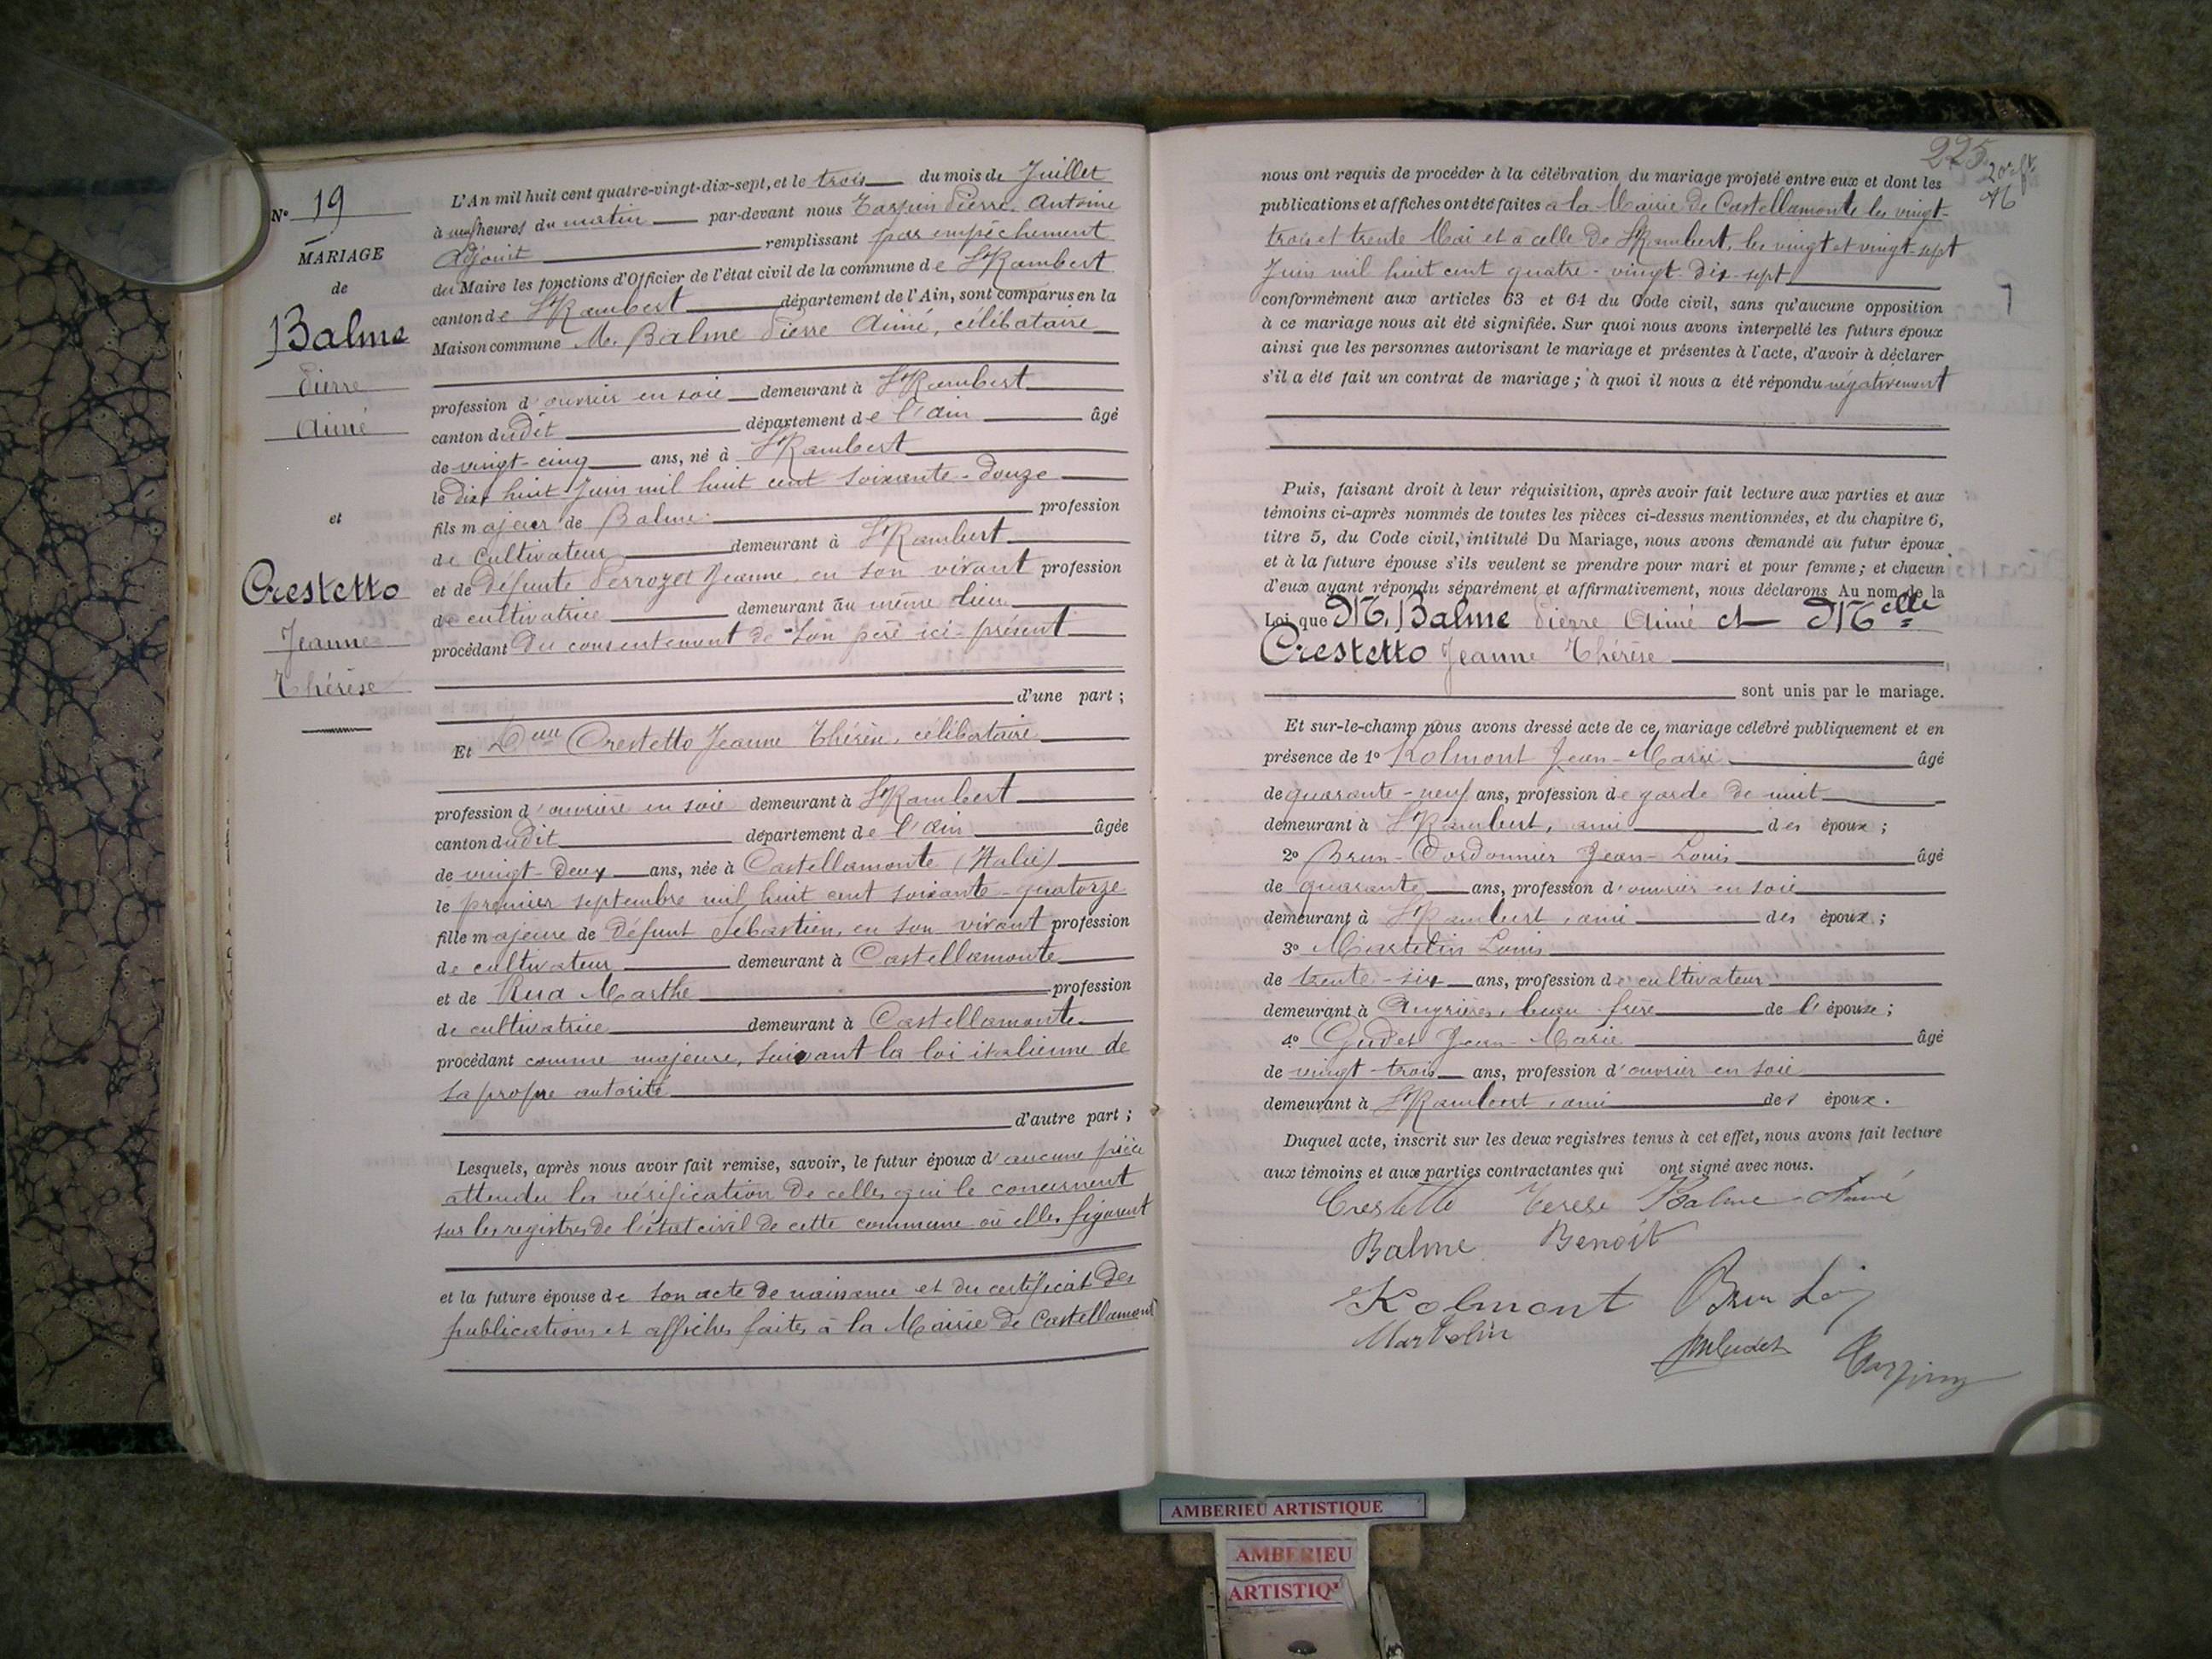 N° 19
MARIAGE
de
Balme
Pierre
Aimé
et
Crestetto
Jeanne
Thérèse
L'An mil huit cent quatre-vingt-dix-sept, et le trois du mois de Juillet
à neuf heures du matin par-devant nous Tarpin Pierre Antoine
Adjoint remplissant par empêchement
du Maire les fonctions d'Officier de l'état civil de la commune de St Rambert
canton de St Rambert département de l'Ain, sont comparus en la
Maison commune M. Balme Pierre Aimé, célibataire
profession d'ouvrier en soie demeurant à St Rambert
canton dudit département de l'Ain âgé
de vingt-cinq ans, né à St Rambert
le dix huit Juin mil huit cent soixante-douze
fils majeur de Balme profession
de cultivateur demeurant à St Rambert
et de défunte Perrozet Jeanne, en son vivant profession
de cultivatrice demeurant au même lieu
procédant du consentement de son père ici-présent
d'une part ;
Et Delle Crestetto Jeanne Thérèse, célibataire
profession d'ouvrière en soie demeurant à St Rambert
canton dudit département de l'Ain âgée
de vingt-deux ans, née à Castellamonte (Italie)
le premier septembre mil huit cent soixante-quatorze
fille majeure de défunt Sébastien, en son vivant profession
de cultivateur demeurant à Castellamonte
et de Rua Marthe profession
de cultivatrice demeurant à Castellamonte
procédant comme majeure, suivant la loi italienne de
sa propre autorité
d'autre part ;
Lesquels, après nous avoir fait remise, savoir, le futur époux d'aucune pièce
attendu la vérification de celles qui le concernent
sur les registres de l'état civil de cette commune où elles figurent
et la future épouse de son acte de naissance et du certificat des
publications et affiches faites à la Mairie de Castellamonte
225
nous ont requis de procéder à la célébration du mariage projeté entre eux et dont les
publications et affiches ont été faites à la Mairie de Castellamonte les vingt-
trois et trente Mai et à celle de St Rambert, les vingt et vingt-sept
Juin mil huit cent quatre-vingt-dix-sept
conformément aux articles 63 et 64 du Code civil, sans qu'aucune opposition
à ce mariage nous ait été signifiée. Sur quoi nous avons interpellé les futurs époux
ainsi que les personnes autorisant le mariage et présentes à l'acte, d'avoir à déclarer
s'il a été fait un contrat de mariage ; à quoi il nous a été répondu négativement
Puis, faisant droit à leur réquisition, après avoir fait lecture aux parties et aux
témoins ci-après nommés de toutes les pièces ci-dessus mentionnées, et du chapitre 6,
titre 5, du Code civil, intitulé Du Mariage, nous avons demandé au futur époux
et à la future épouse s'ils veulent se prendre pour mari et pour femme ; et chacun
d'eux ayant répondu séparément et affirmativement, nous déclarons Au nom de la
Loi que M. Balme Pierre Aimé et Melle
Crestetto Jeanne Thérèse
sont unis par le mariage.
Et sur-le-champ nous avons dressé acte de ce mariage célébré publiquement et en
présence de 1° Kolmont Jean-Marie âgé
de quarante-neuf ans, profession de garde de nuit
demeurant à St Rambert, ami des époux ;
2° Brun-Cordonnier Jean-Louis âgé
de quarante ans, profession d'ouvrier en soie
demeurant à St Rambert, ami des époux ;
3° Martelin Louis
de trente-six ans, profession de cultivateur
demeurant à Angrières, beau-frère de l'épouse ;
4° Gudet Jean-Marie âgé
de vingt-trois ans, profession d'ouvrier en soie
demeurant à St Rambert, ami des époux.
Duquel acte, inscrit sur les deux registres tenus à cet effet, nous avons fait lecture
aux témoins et aux parties contractantes qui ont signé avec nous.
Crestetto Terese Balme Aimé
Balme Benoît
Kolmont Brun
Martelin
Tarpin
AMBERIEU ARTISTIQUE
AMBERIEU
ARTISTIQ